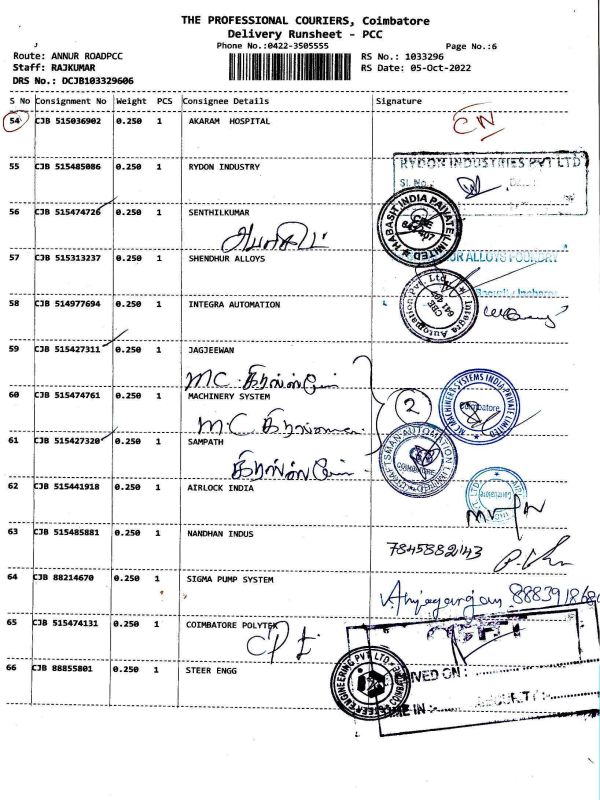 THE PROFESSIONAL COURIERS, Coimbatore
Delivery Runsheet - PCC
Phone No.:0422-3505555 Page No.:6
Route: ANNUR ROADPCC RS No.: 1033296
Staff: RAJKUMAR RS Date: 05-Oct-2022
DRS No.: DCJB103329606
S No Consignment No Weight PCS Consignee Details Signature
54 CJB 515036902 0.250 1 AKARAM HOSPITAL
55 CJB 515485086 0.250 1 RYDON INDUSTRY
RYDON INDUSTRIES PVT LTD
Sl. No.:
56 CJB 515474726 0.250 1 SENTHILKUMAR
HABASIT INDIA PRIVATE LIMITED
CBE
57 CJB 515313237 0.250 1 SHENDHUR ALLOYS
ALLOYS FOUNDRY
58 CJB 514977694 0.250 1 INTEGRA AUTOMATION
Integra Automation Pvt. Ltd.
CBE
59 CJB 515427311 0.250 1 JAGJEEWAN
60 CJB 515474761 0.250 1 MACHINERY SYSTEM
2
MACHINERY SYSTEMS INDIA PRIVATE LIMITED
Coimbatore
61 CJB 515427320 0.250 1 SAMPATH
CRAFTSMAN AUTOMATION LIMITED
COIMBATORE
62 CJB 515441918 0.250 1 AIRLOCK INDIA
Coimbatore
63 CJB 515485881 0.250 1 NANDHAN INDUS
7845882143
64 CJB 88214670 0.250 1 SIGMA PUMP SYSTEM
65 CJB 515474131 0.250 1 COIMBATORE POLYTEK
66 CJB 88855801 0.250 1 STEER ENGG
STEER ENGINEERING PVT LTD
VED ON :
ME IN :
SECURITY :